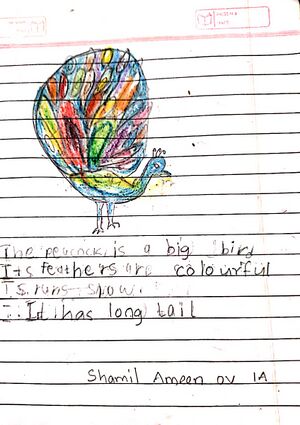 The peacock is a big bird
Its feathers are colourful
Is runs slow.
It has long tail
Shamil Ameen ov 1A